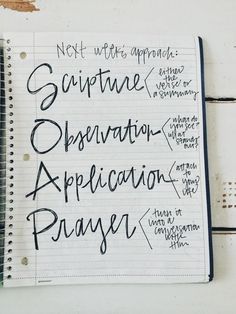 Next weeks approach:
Scripture
either
the verse or
a summary
Observation
what do
you see?
what
stands
out?
Application
attach
to
your
life
Prayer
turn it
into a
conversation
with
Him